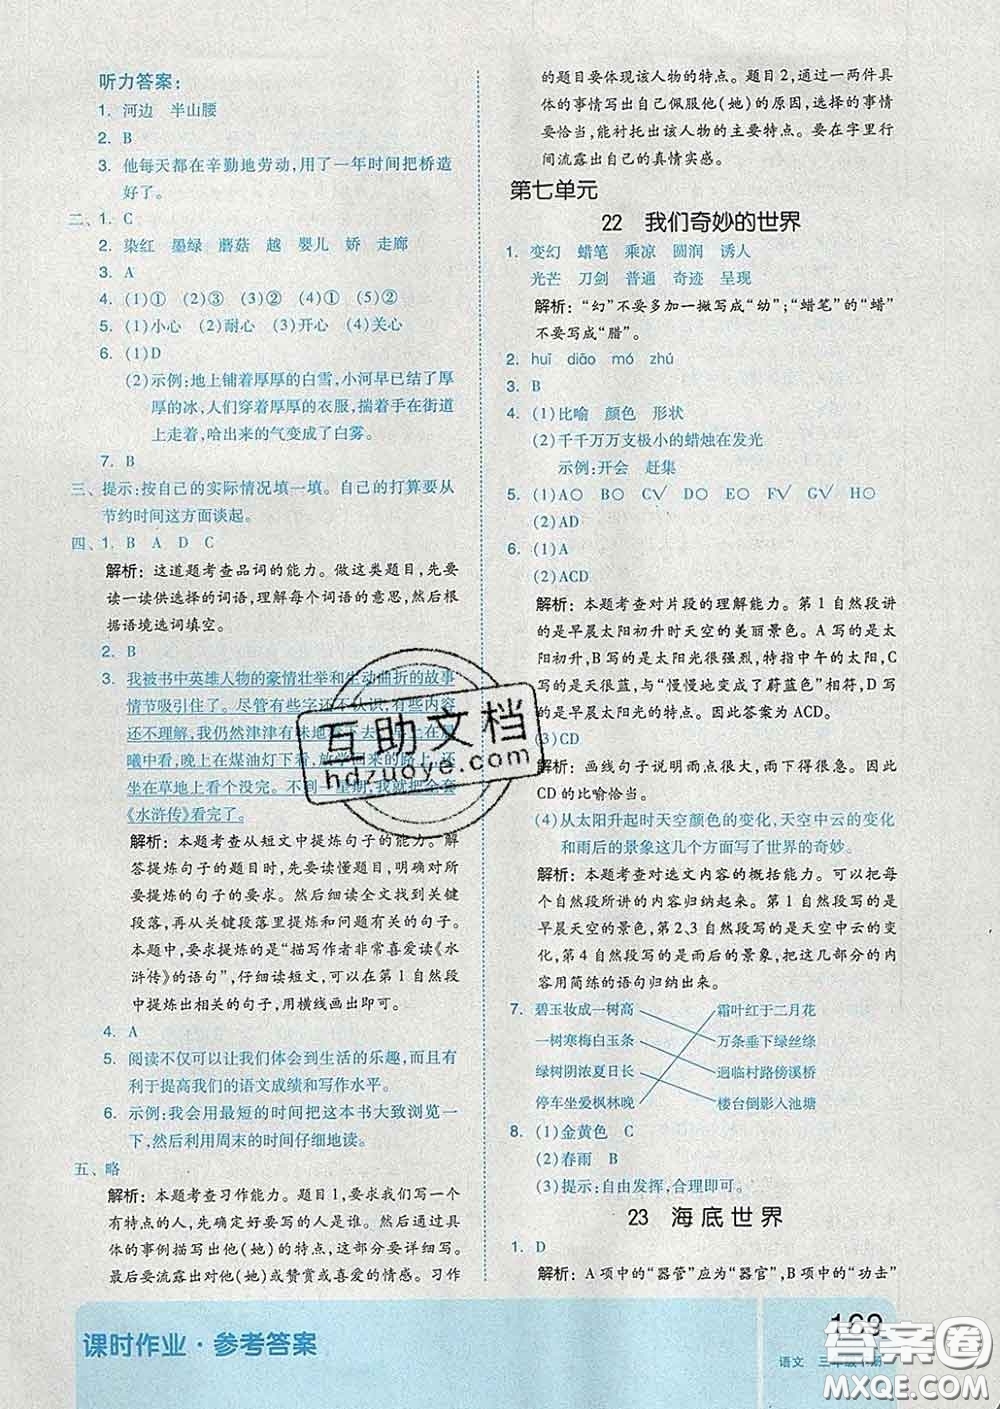 听力答案:
1. 河边 半山腰
2. B
3. 他每天都在辛勤地劳动,用了一年时间把桥造
好了。
二、1. C
2. 染红 墨绿 蘑菇 越 婴儿 娇 走廊
3. A
4. (1)① (2)③ (3)② (4)① (5)②
5. (1)小心 (2)耐心 (3)开心 (4)关心
6. (1)D
(2)示例:地上铺着厚厚的白雪,小河早已结了厚
厚的冰,人们穿着厚厚的衣服,揣着手在街道
上走着,哈出来的气变成了白雾。
7. B
三、提示:按自己的实际情况填一填。自己的打算要从
节约时间这方面谈起。
四、1. B A D C
解析:这道题考查品词的能力。做这类题目,先要
读一读供选择的词语,理解每个词语的意思,然后根
据语境选词填空。
2. B
3. 我被书中英雄人物的豪情壮举和生动曲折的故事
情节吸引住了。尽管有些字还不认识,有些内容
还不理解,我仍然津津有味地
曦中看,晚上在煤油灯下看,放学回来的路上,还
坐在草地上看个没完。不到一星期,我就把全套
《水浒传》看完了。
解析:本题考查从短文中提炼句子的能力。解
答提炼句子的题目时,先要读懂题目,明确对所要
提炼的句子的要求。然后细读文段找到关键
段落,再从关键段落里提炼和问题有关的句子。
本题中,要求提炼的是“描写作者非常喜爱读《水
浒传》的语句”,仔细读短文,可以在第1自然段
中提炼出相关的句子,用横线画出即可。
4. A
5. 阅读不仅可以让我们体会到生活的乐趣,而且有
利于提高我们的语文成绩和写作水平。
6. 示例:我会用最短的时间把这本书大致浏览一
下,然后利用周末的时间仔细地读。
五、略
解析:本题考查习作能力。题目1,要求我们写一个
有特点的人,先确定好要写的人是谁。然后通过具
体的事例描写出他(她)的特点,这部分要详细写。
最后要流露出对他(她)或赞赏或喜爱的情感。习作
的题目要体现该人物的特点。题目2,通过一两件具
体的事情写出自己佩服他(她)的原因,选择的事情
要恰当,能衬托出该人物的主要特点。要在字里行
间流露出自己的真情实感。
第七单元
22 我们奇妙的世界
1. 变幻 蜡笔 乘凉 圆润 诱人
光芒 刀剑 普通 奇迹 呈现
解析:“幻”不要多加一撇写成“幼”;“蜡笔”的“蜡”
不要写成“腊”。
2. huī diāo mó zhú
3. B
4. (1)比喻 颜色 形状
(2)千千万万支极小的蜡烛在发光
示例:开会 赶集
5. (1)A○ B○ C√ D○ E○ F√ G√ H○
(2)AD
6. (1)A
(2)ACD
解析:本题考查对片段的理解能力。第1自然段讲
的是早晨太阳初升时天空的美丽景色。A写的是太
阳初升,B写的是太阳光很强烈,特指中午的太阳,C
写的是天很蓝,与“慢慢地变成了蔚蓝色”相符,D写
的是太阳光的特点。因此答案为ACD。
(3)CD
解析:画线句子写雨点很大,雨下得很急。因此
CD的比喻恰当。
(4)从太阳升起时天空颜色的变化,天空中云的变化
和雨后的景象这几个方面写了世界的奇妙。
解析:本题考查对选文内容的概括能力。可以把每
个自然段所讲的内容归纳起来。第1自然段写的是
早晨天空颜色的变化,第2、3自然段写的是天空中云的变
化,第4自然段写的是雨后的景象,把这几部分的内
容用简练的语句归纳起来。
7. 碧玉妆成一树高 霜叶红于二月花
一树寒梅白玉条 万条垂下绿丝绦
绿树阴浓夏日长 迥临村路傍溪桥
停车坐爱枫林晚 楼台倒影入池塘
8. (1)金黄色 C
(2)春雨 B
(3)提示:自由发挥,合理即可。
23 海底世界
1. D
解析:A项中的“器管”应为“器官”,B项中的“功击”
课时作业·参考答案
169
语文 三年级下册
互助文档
hdzuoye.com
答案圈
MXQE.COM